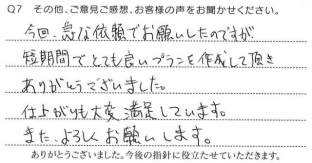 Q7 その他、ご意見ご感想、お客様の声をお聞かせください。
今回、急な依頼でお願いしたのですが、
短期間でとても良いプランを作成して頂き
ありがとうございました。
仕上がりも大変満足しています。
また、よろしくお願いします。
ありがとうございました。今後の指針に役立たせていただきます。